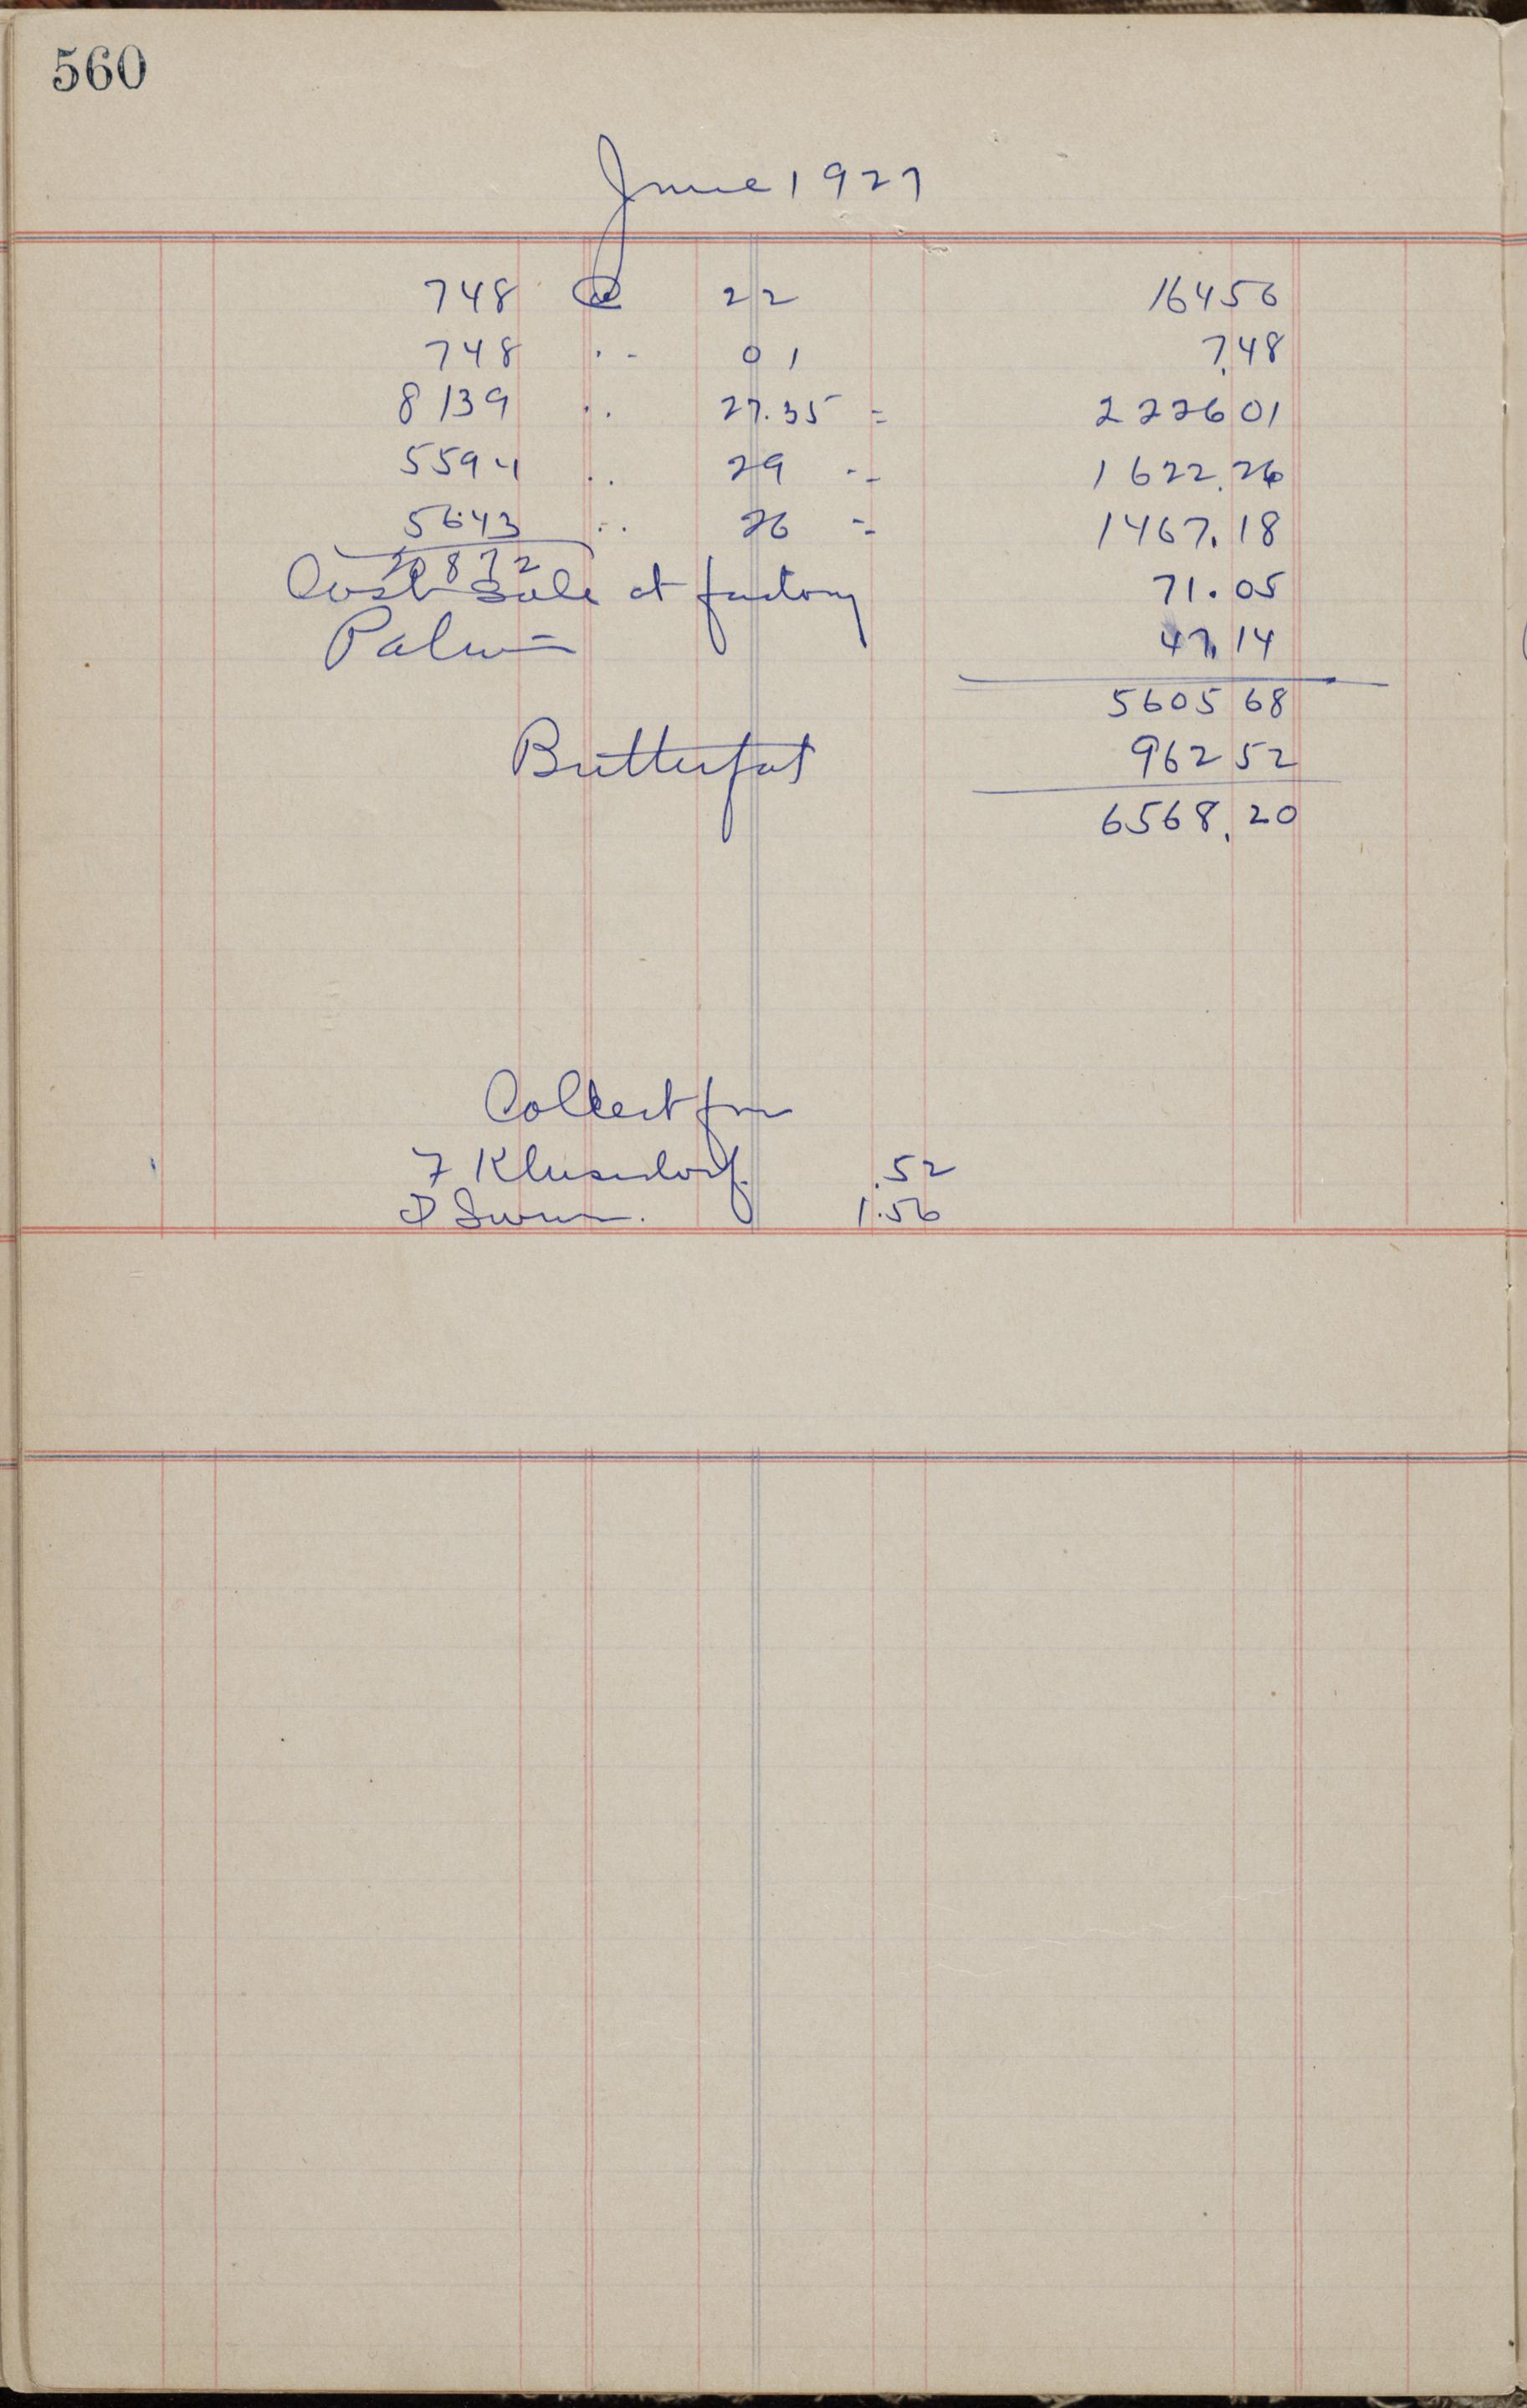 560
June 1927
748 @ 22 164 56
748 " 01 7.48
8139 " 27.35 = 2226 01
5594 " 29 = 1622.26
5643 " 26 = 1467.18
20872
Cash Sale at factory 71.05
47.14
5605 68
Butterfat 962 52
6568.20
Collect from
F Klusendorf. .52
1.56